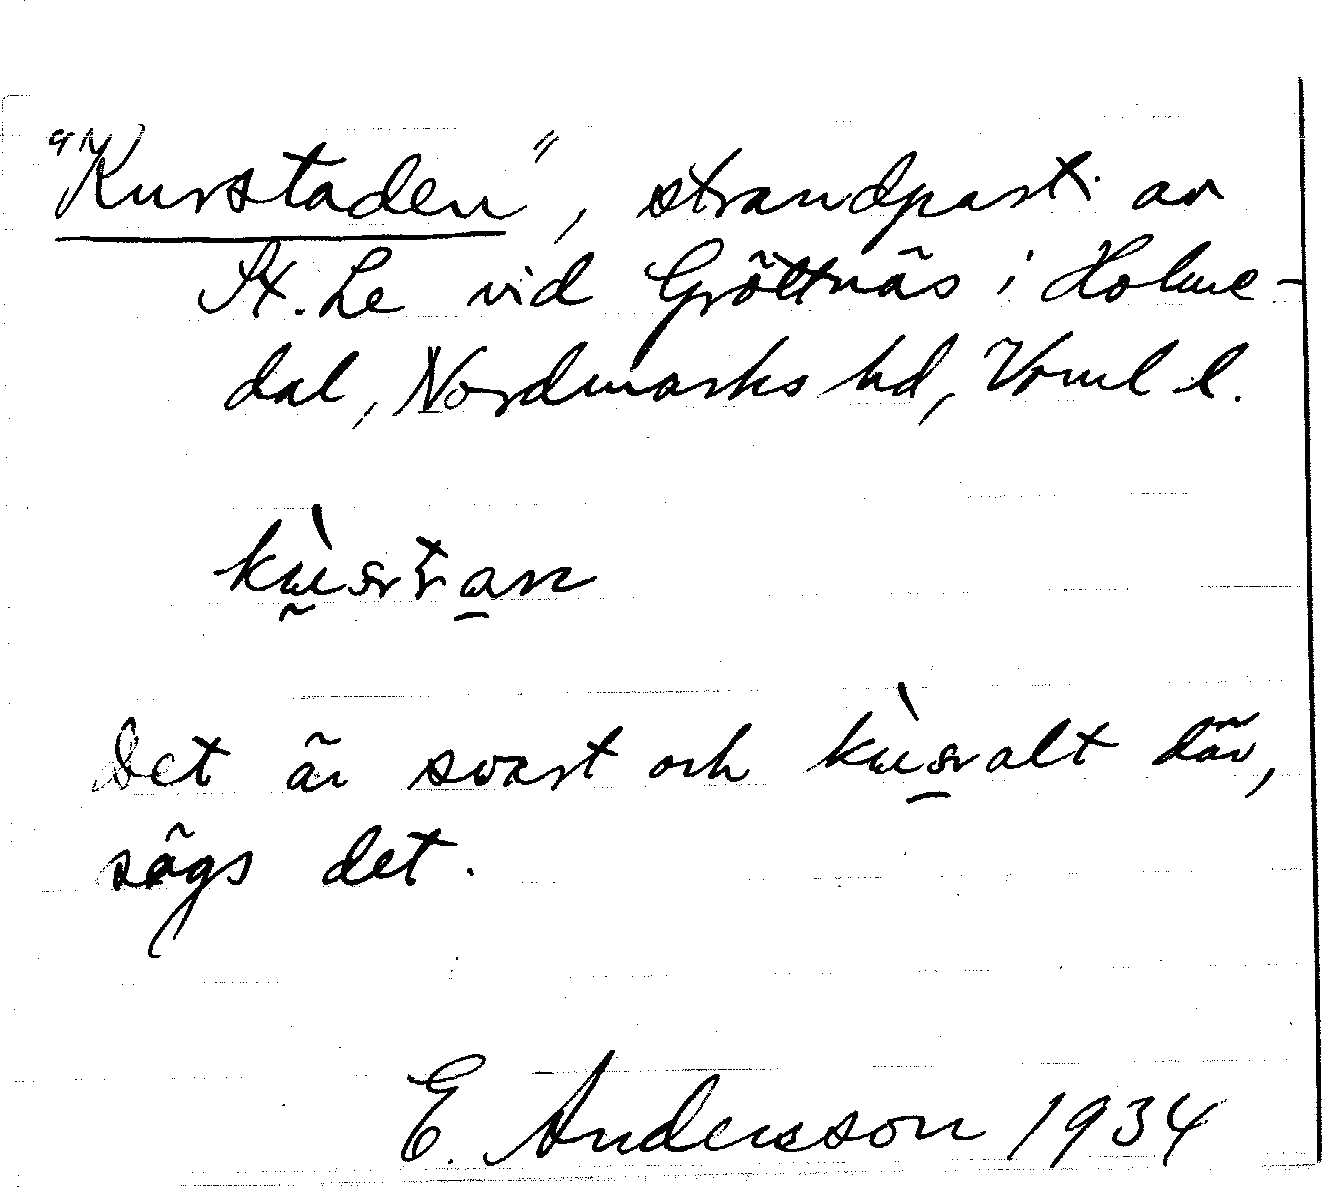 "Kurstaden", strandparti av
St. Le vid Gröttnäs i Holme-
dal, Nordmarks hd, Vrml l.
Det är svart och där,
sägs det.
E. Andersson 1934